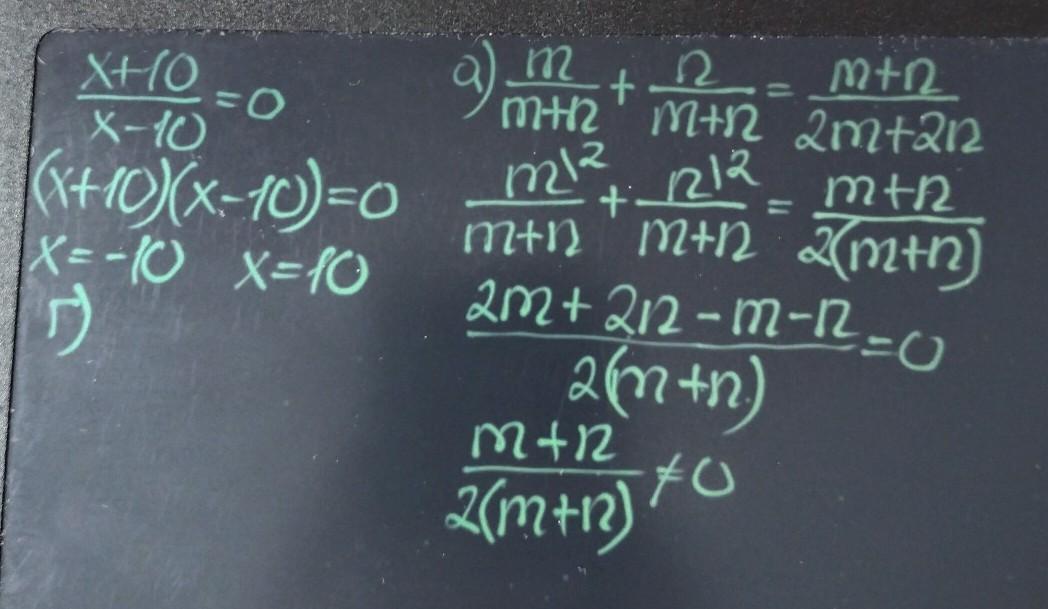 x+10/x-10 = 0
(x+10)(x-10)=0
x=-10 x=10
г)
а) m/m+n + n/m+n = m+n/2m+2n
m\2/m+n + n\2/m+n = m+n/2(m+n)
2m+2n-m-n/2(m+n) = 0
m+n/2(m+n) ≠ 0